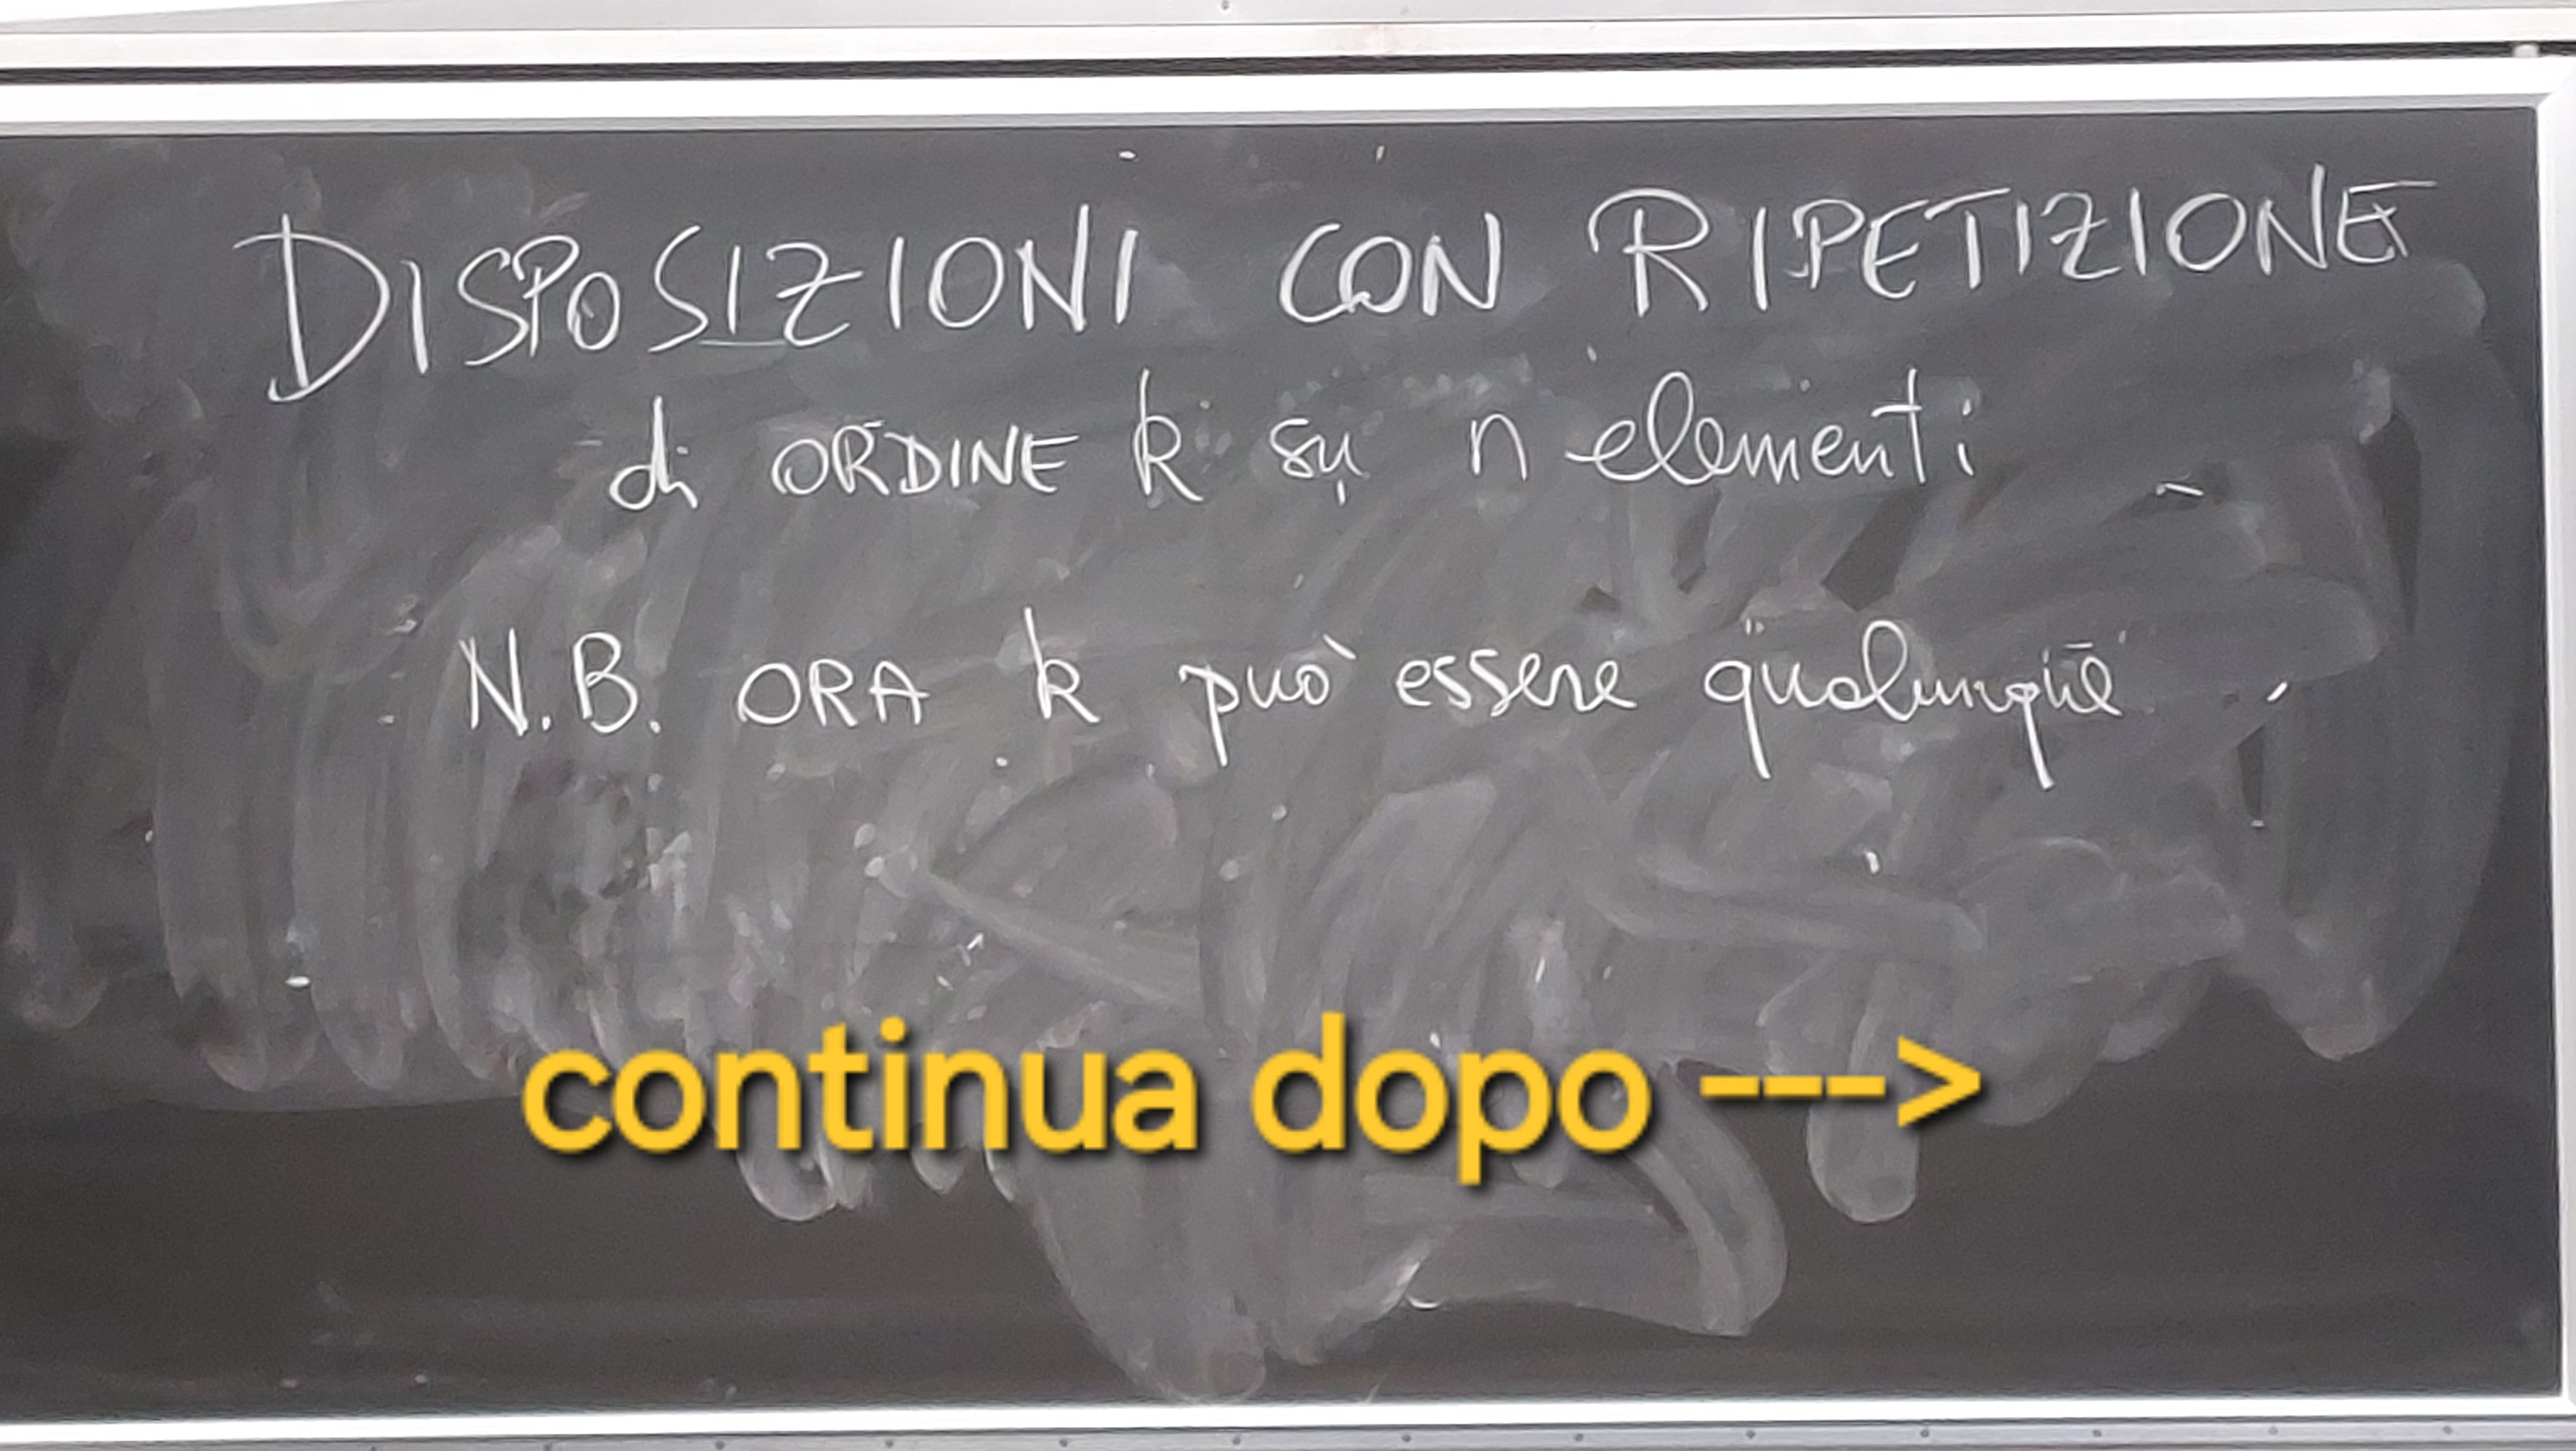 DISPOSIZIONI CON RIPETIZIONE
di ORDINE k su n elementi
N.B. ORA k può essere qualunque
continua dopo --->